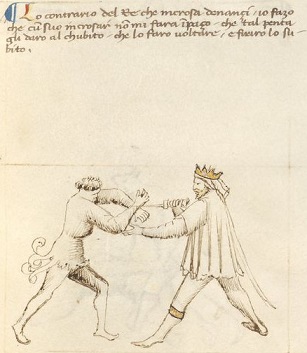 Lo contrario del Re che incrosa denançi, io fazo
che cu͂ suo incrosar nō mi farà ĩpaço, che tal penta
gli darò al chubito, che lo farò voltare, e fariro lo su
bito.